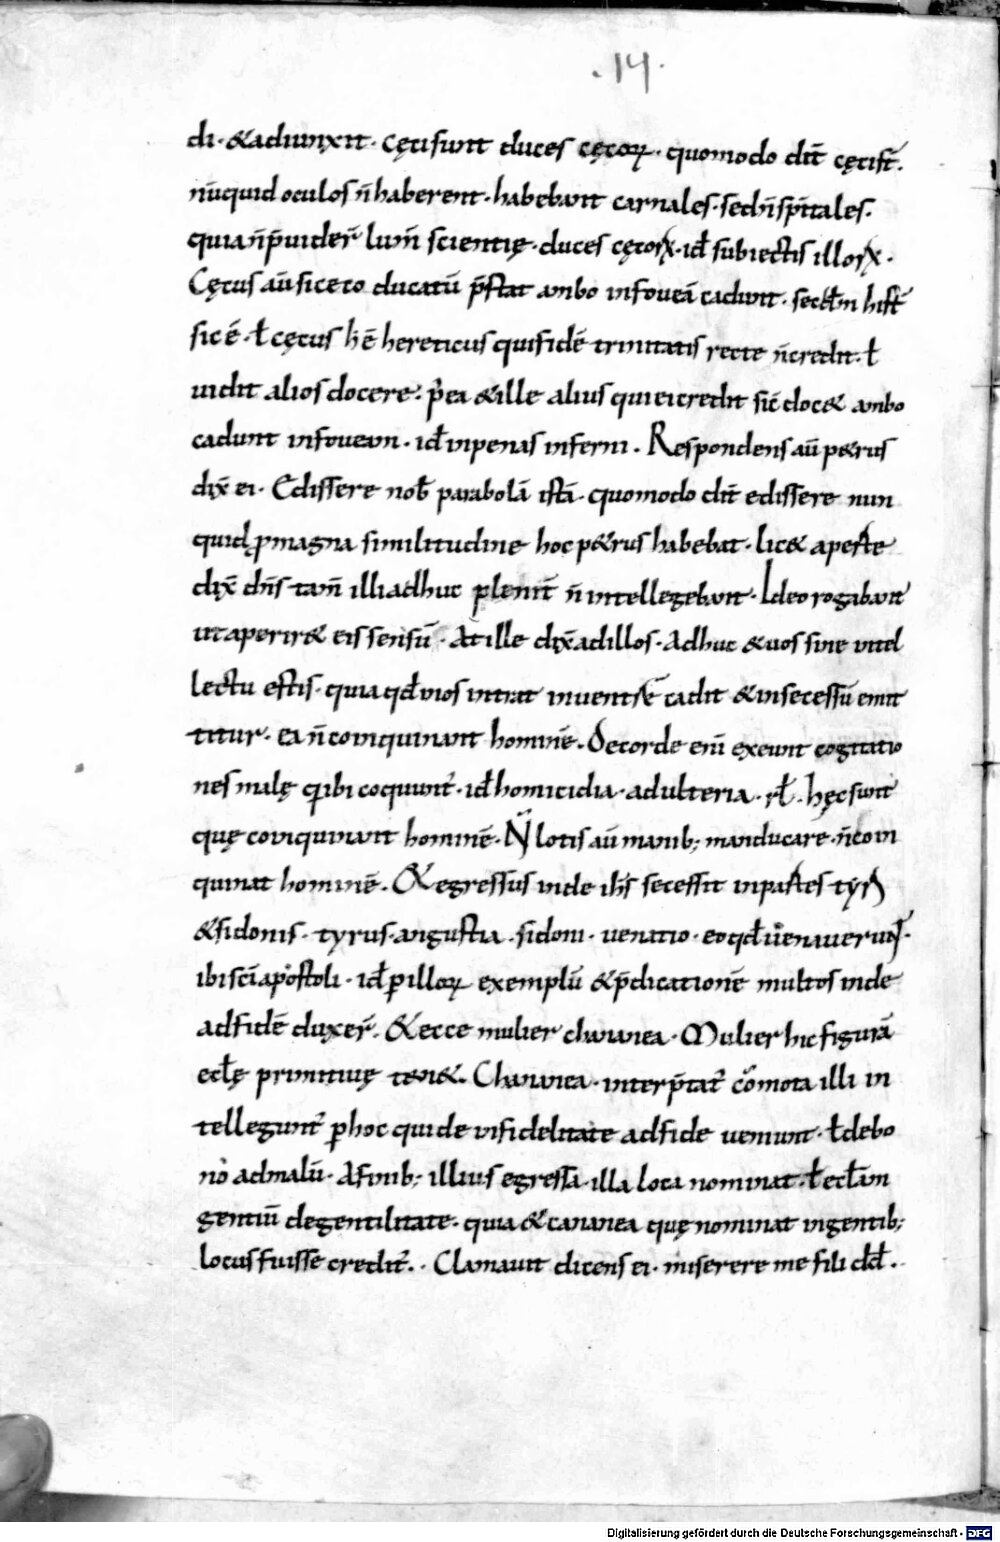 .14.
di. &adiunxit. Cęci sunt duces cęcoꝝ. quomodo dix̄ cęci st̄.
nūquid oculos n̄ haberent. habebant carnales. sed n̄ sp̄itales.
quia n̄ p̄uider̄ lum̄ scientię. duces cęcorꝝ. id ÷ subiectis illorꝝ.
Cęcus aū si cęco ducatū p̄stat ambo in foueā cadunt. secd̄m hist̄
sic ē. ł cęcus h̄ ē hereticus qui fidē trinitatis recte n̄ credit. ł
uidit alios docere. p̄ea & ille alius qui ei credit sic̄ doc& ambo
cadunt in foueam. id ÷ in penas inferni. Respondens aū p&rus
dix̄ ei. Edissere nob̄ parabolā istā. quomodo dix̄ edissere nun
quid ꝓ magna similitudine hoc p&rus habebat. lic& aperte
dix̄ dn̄s tam̄ illi adhuc plenit̄ n̄ intellegebant. Ideo rogabant
ut aperir& eis sensū. At ille dix̄ ad illos. Adhuc & uos sine intel
lectu estis. quia qd̄ in os intrat in uentrē cadit & in secessū emit
titur. ea n̄ coinquinant hominē. De corde enī exeunt cogitatio
nes malę q̄ ibi coquunt̄. id ÷ homicidia. adulteria. rł. hęc sunt
quę coinquinant hominē. N̄ lotis aū manib; manducare. n̄ coin
quinat hominē. & egressus inde ih̄s secessit in partes tyri
& sidonis. tyrus. angustia. sidoni. uenatio. eo qd̄ uenauerunt.
ibi sc̄i apostoli. id ÷ ꝑ illoꝝ exemplū & p̄dicationē multos inde
ad fidē duxer̄. & ecce mulier chananea. Mulier hic figurā
eccl̄ę primitiuę ten&. Chananea. interp̄tat̄ cōmota illi in
tellegunt̄ ꝑ hoc qui de infidelitate ad fidē ueniunt. ł de bo
no ad malū. A finib; illius egressa. illa loca nominat. ł eccl̄am
gentiū de gentilitate. quia & cananea quę nominat in gentib;
locus fuisse credit̄. Clamauit dicens ei. miserere me fili dd̄.
Digitalisierung gefördert durch die Deutsche Forschungsgemeinschaft - DFG